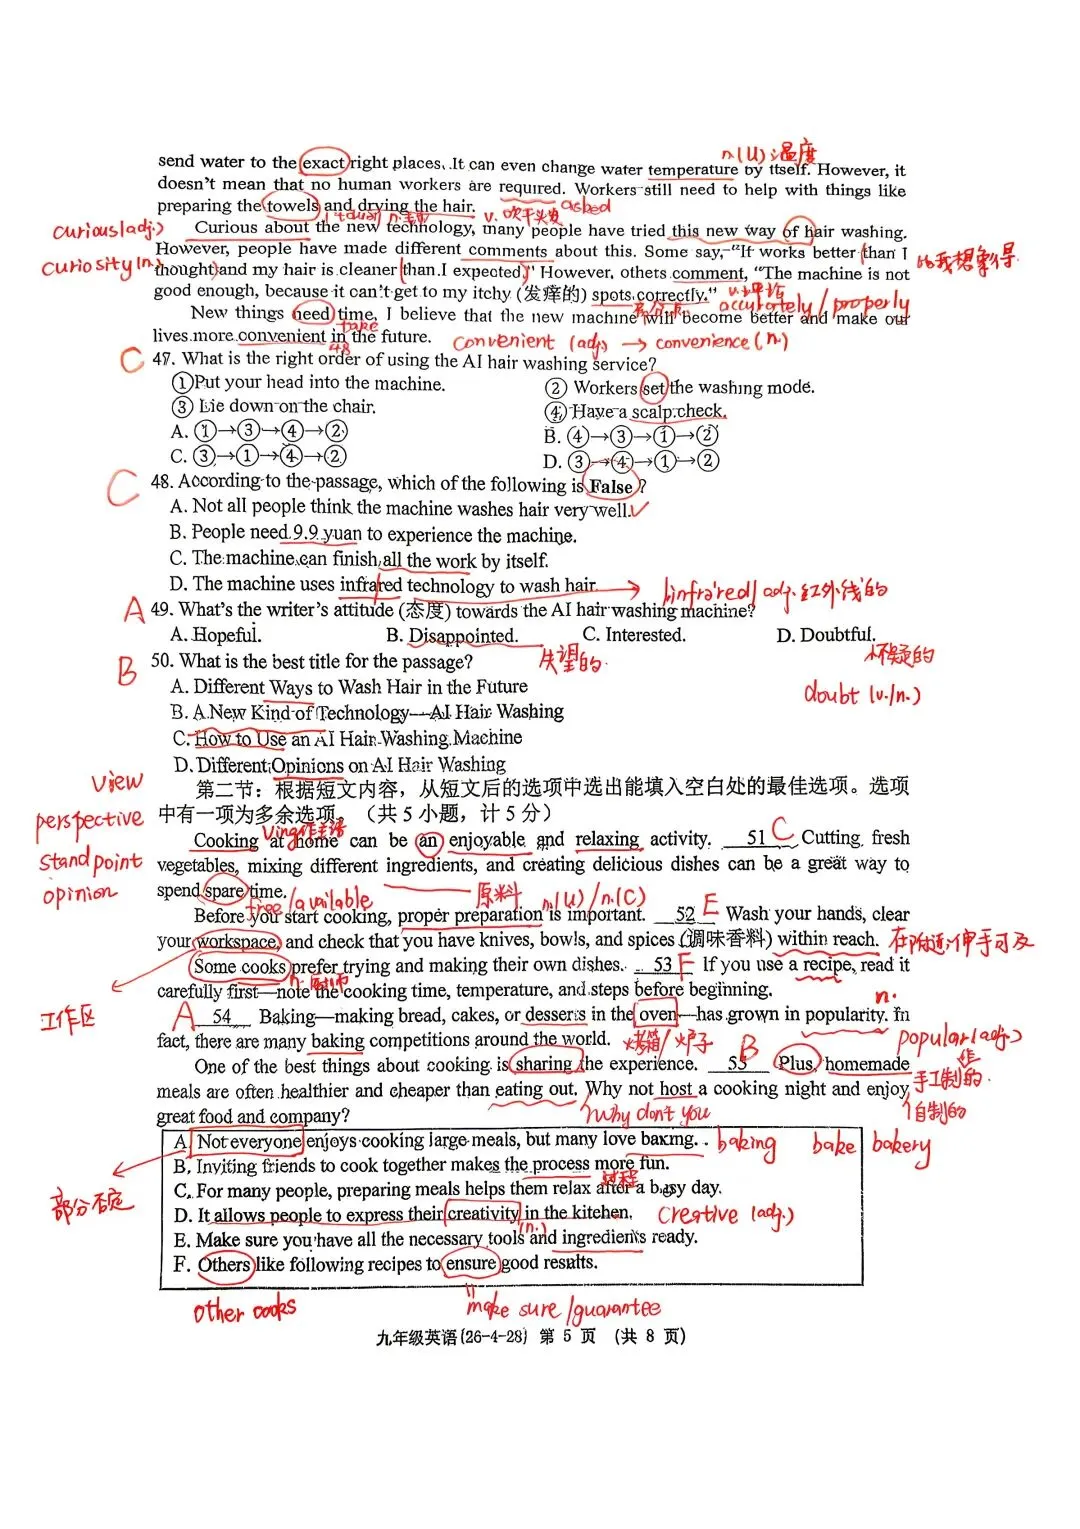 n.(U) 温度
send water to the exact right places. It can even change water temperature by itself. However, it
doesn't mean that no human workers are required. Workers still need to help with things like
asked
preparing the towels and drying the hair.
v. 吹干头发
curious(adj.)
Curious about the new technology, many people have tried this new way of hair washing.
However, people have made different comments about this. Some say, "It works better than I
curiosity(n.)
thought and my hair is cleaner than I expected." However, others comment, "The machine is not
比我想象得
good enough, because it can't get to my itchy (发痒的) spots correctly."
accurately/properly
New things need time. I believe that the new machine will become better and make our
take
lives more convenient in the future.
convenient (adj) → convenience (n.)
C
47. What is the right order of using the AI hair washing service?
①Put your head into the machine.
② Workers set the washing mode.
③ Lie down on the chair.
④ Have a scalp check.
A. ①→③→④→②
B. ④→③→①→②
C. ③→①→④→②
D. ③→④→①→②
C
48. According to the passage, which of the following is False?
A. Not all people think the machine washes hair very well.
B. People need 9.9 yuan to experience the machine.
C. The machine can finish all the work by itself.
D. The machine uses infrared technology to wash hair.
/ɪnfrəˈred/ adj. 红外线的
A
49. What's the writer's attitude (态度) towards the AI hair washing machine?
A. Hopeful.
B. Disappointed.
C. Interested.
D. Doubtful.
失望的
怀疑的
doubt (v./n.)
B
50. What is the best title for the passage?
A. Different Ways to Wash Hair in the Future
B. A New Kind of Technology—AI Hair Washing
C. How to Use an AI Hair Washing Machine
D. Different Opinions on AI Hair Washing
view
perspective
standpoint
opinion
第二节：根据短文内容，从短文后的选项中选出能填入空白处的最佳选项。选项
中有一项为多余选项。（共 5 小题，计 5 分）
Ving作主语
Cooking at home can be an enjoyable and relaxing activity. 51 C Cutting fresh
vegetables, mixing different ingredients, and creating delicious dishes can be a great way to
spend spare time.
free/available
原料
n.(U)/n.(C)
Before you start cooking, proper preparation is important. 52 E Wash your hands, clear
your workspace, and check that you have knives, bowls, and spices (调味香料) within reach.
在附近;伸手可及
工作区
Some cooks prefer trying and making their own dishes. 53 F If you use a recipe, read it
n. 厨师
carefully first—note the cooking time, temperature, and steps before beginning.
n.
A 54 Baking—making bread, cakes, or desserts in the oven—has grown in popularity. In
popular(adj.)
fact, there are many baking competitions around the world.
烤箱/炉子
One of the best things about cooking is sharing the experience. 55 B Plus, homemade
手工制的
meals are often healthier and cheaper than eating out. Why not host a cooking night and enjoy
自制的
great food and company?
why don't you
A. Not everyone enjoys cooking large meals, but many love baking.
baking bake bakery
部分否定
B. Inviting friends to cook together makes the process more fun.
过程
C. For many people, preparing meals helps them relax after a busy day.
D. It allows people to express their creativity in the kitchen.
(n.)
creative (adj.)
E. Make sure you have all the necessary tools and ingredients ready.
F. Others like following recipes to ensure good results.
other cooks
make sure/guarantee
九年级英语(26-4-28) 第 5 页 （共 8 页）